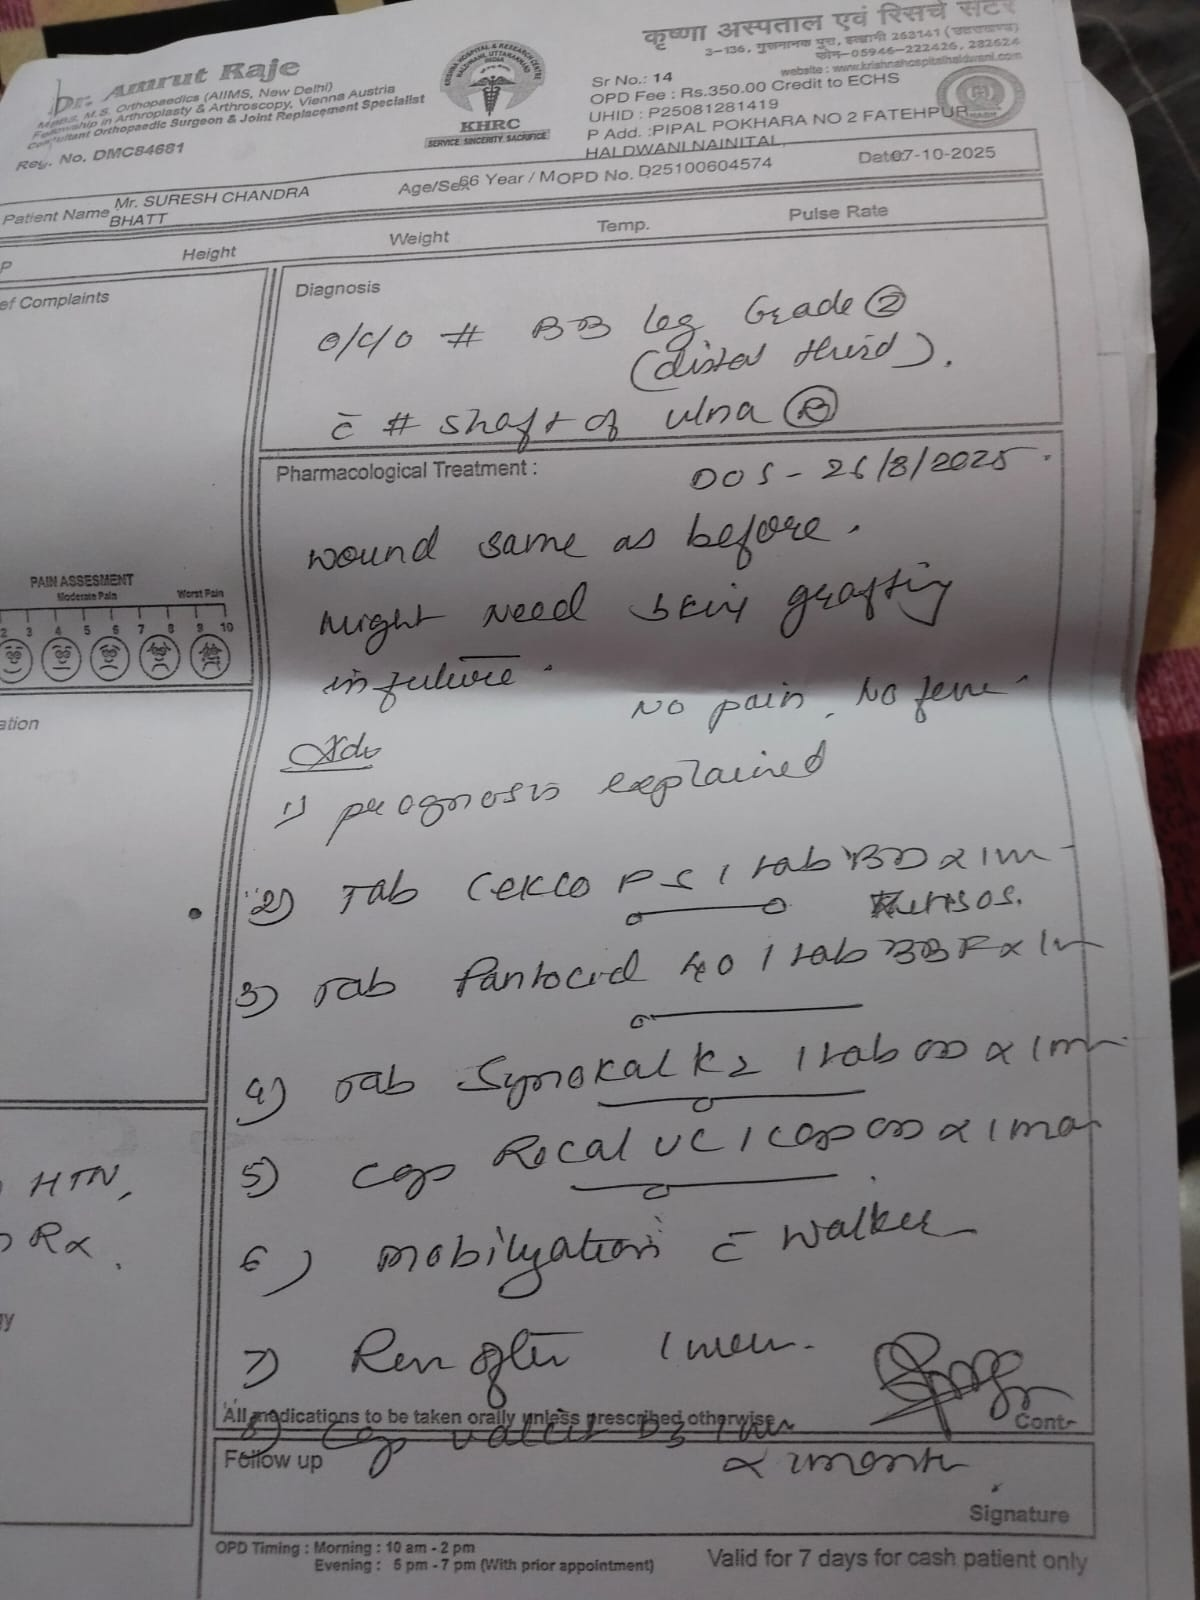 Dr. Amrut Raje
MBBS, M.S. Orthopaedics (AIIMS, New Delhi)
Fellowship in Arthroplasty & Arthroscopy, Vienna Austria
Consultant Orthopaedic Surgeon & Joint Replacement Specialist
Reg. No. DMC84681
KRISHNA HOSPITAL & RESEARCH CENTRE
HALDWANI, UTTARAKHAND
INDIA
KHRC
SERVICE SINCERITY SACRIFICE
कृष्णा अस्पताल एवं रिसर्च सेंटर
3-136, गुरूनानक पुरा, हल्द्वानी 263141 (उत्तराखण्ड)
फोन-05946-222426, 282624
website : www.krishnahospitalhaldwani.com
Sr No.: 14
OPD Fee : Rs.350.00 Credit to ECHS
UHID : P25081281419
P Add. :PIPAL POKHARA NO 2 FATEHPUR
HALDWANI,NAINITAL,
Patient Name Mr. SURESH CHANDRA
BHATT
Age/Sex 66 Year / M OPD No. D25100604574
Date 07-10-2025
P
Height
Weight
Temp.
Pulse Rate
ef Complaints
Diagnosis
o/c/o # BB leg Grade 2
(distal third).
c̄ # shaft of ulna R
Pharmacological Treatment :
DOS - 26/8/2025
wound same as before.
Might need skin grafting
in future.
No pain, No
PAIN ASSESMENT
Moderate Pain
Worst Pain
2 3 4 5 6 7 8 9 10
ation
Adv
1) prognosis explained
2) Tab PS 1 tab BD x 1m
SOS.
3) Tab Pantocid 40 1 tab BBF x 1m
4) Tab Synokal K2 1 tab OD x 1m
5) Cap Rocal VC 1 cap OD x 1mon
HTN,
Rx.
6) mobilization c̄ walker
7) Rev after
gy
All medications to be taken orally unless prescribed otherwise
8) Cap D3
Cont-
Follow up
x 2month
Signature
OPD Timing : Morning : 10 am - 2 pm
Evening : 6 pm - 7 pm (With prior appointment)
Valid for 7 days for cash patient only